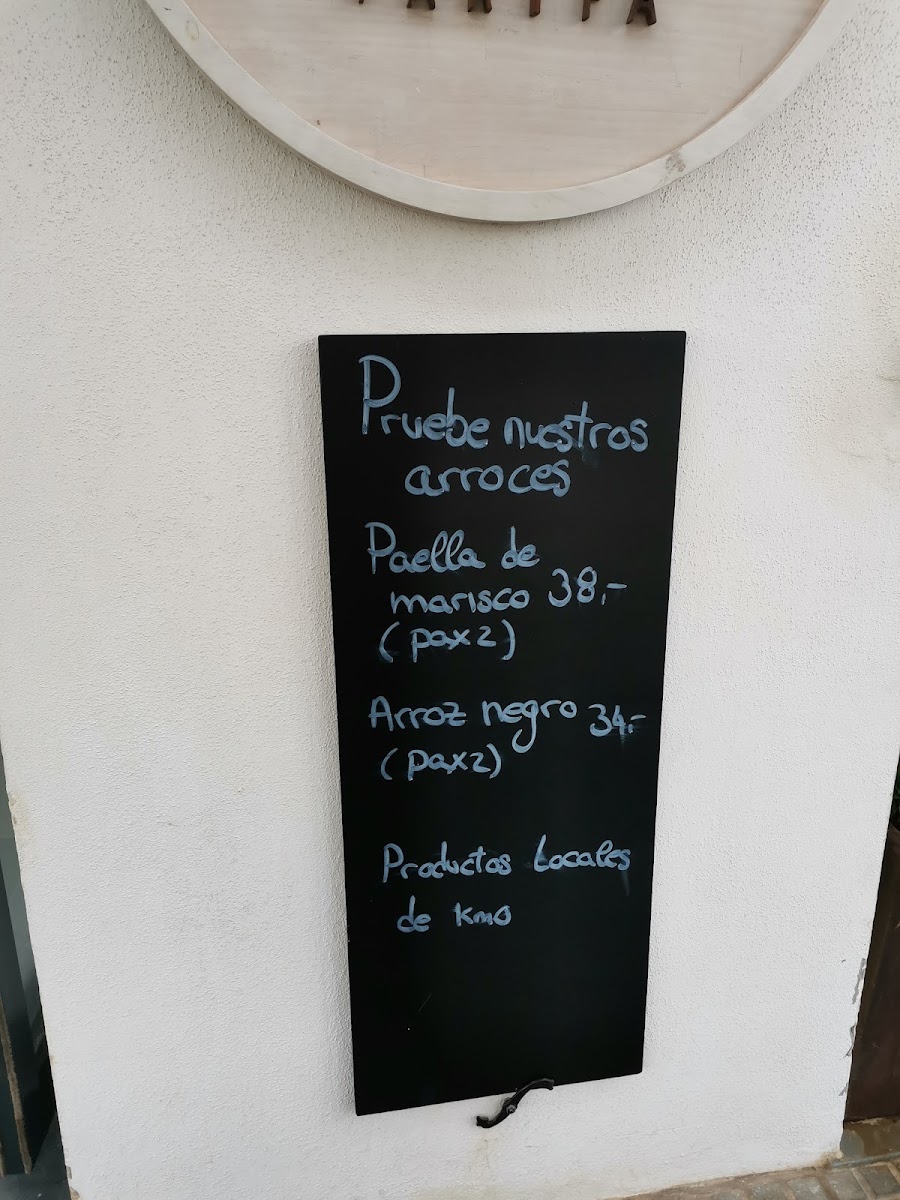 TARIFA
Pruebe nuestros
arroces
Paella de
marisco 38,-
(pax2)
Arroz negro 34,-
(pax2)
Productos Locales
de km0